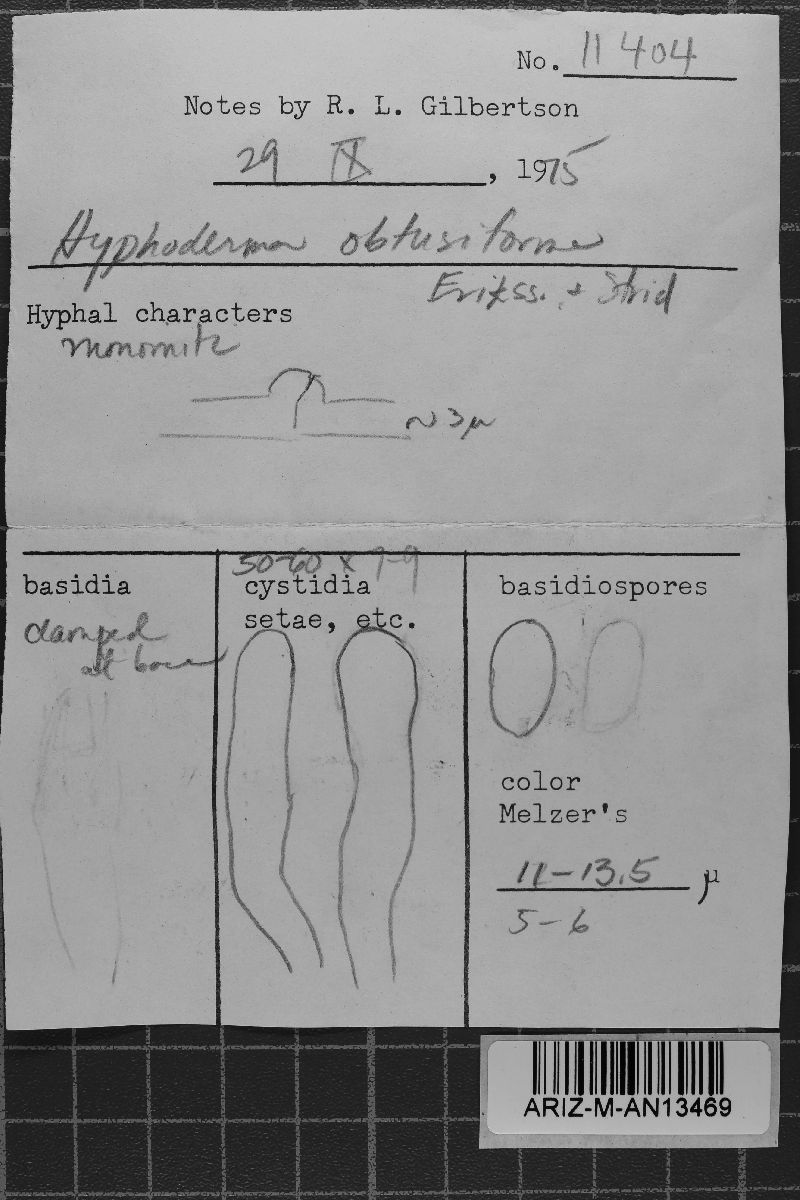 No. 11404
Notes by R. L. Gilbertson
29 IX, 1975
Hyphoderma obtusiforme
Erikss. + Strid
Hyphal characters
monomitic
~ 3 μ
50-60 x 7-9
basidia
clamped
at base
cystidia
setae, etc.
basidiospores
color
Melzer's
11-13.5 μ
5-6
ARIZ-M-AN13469